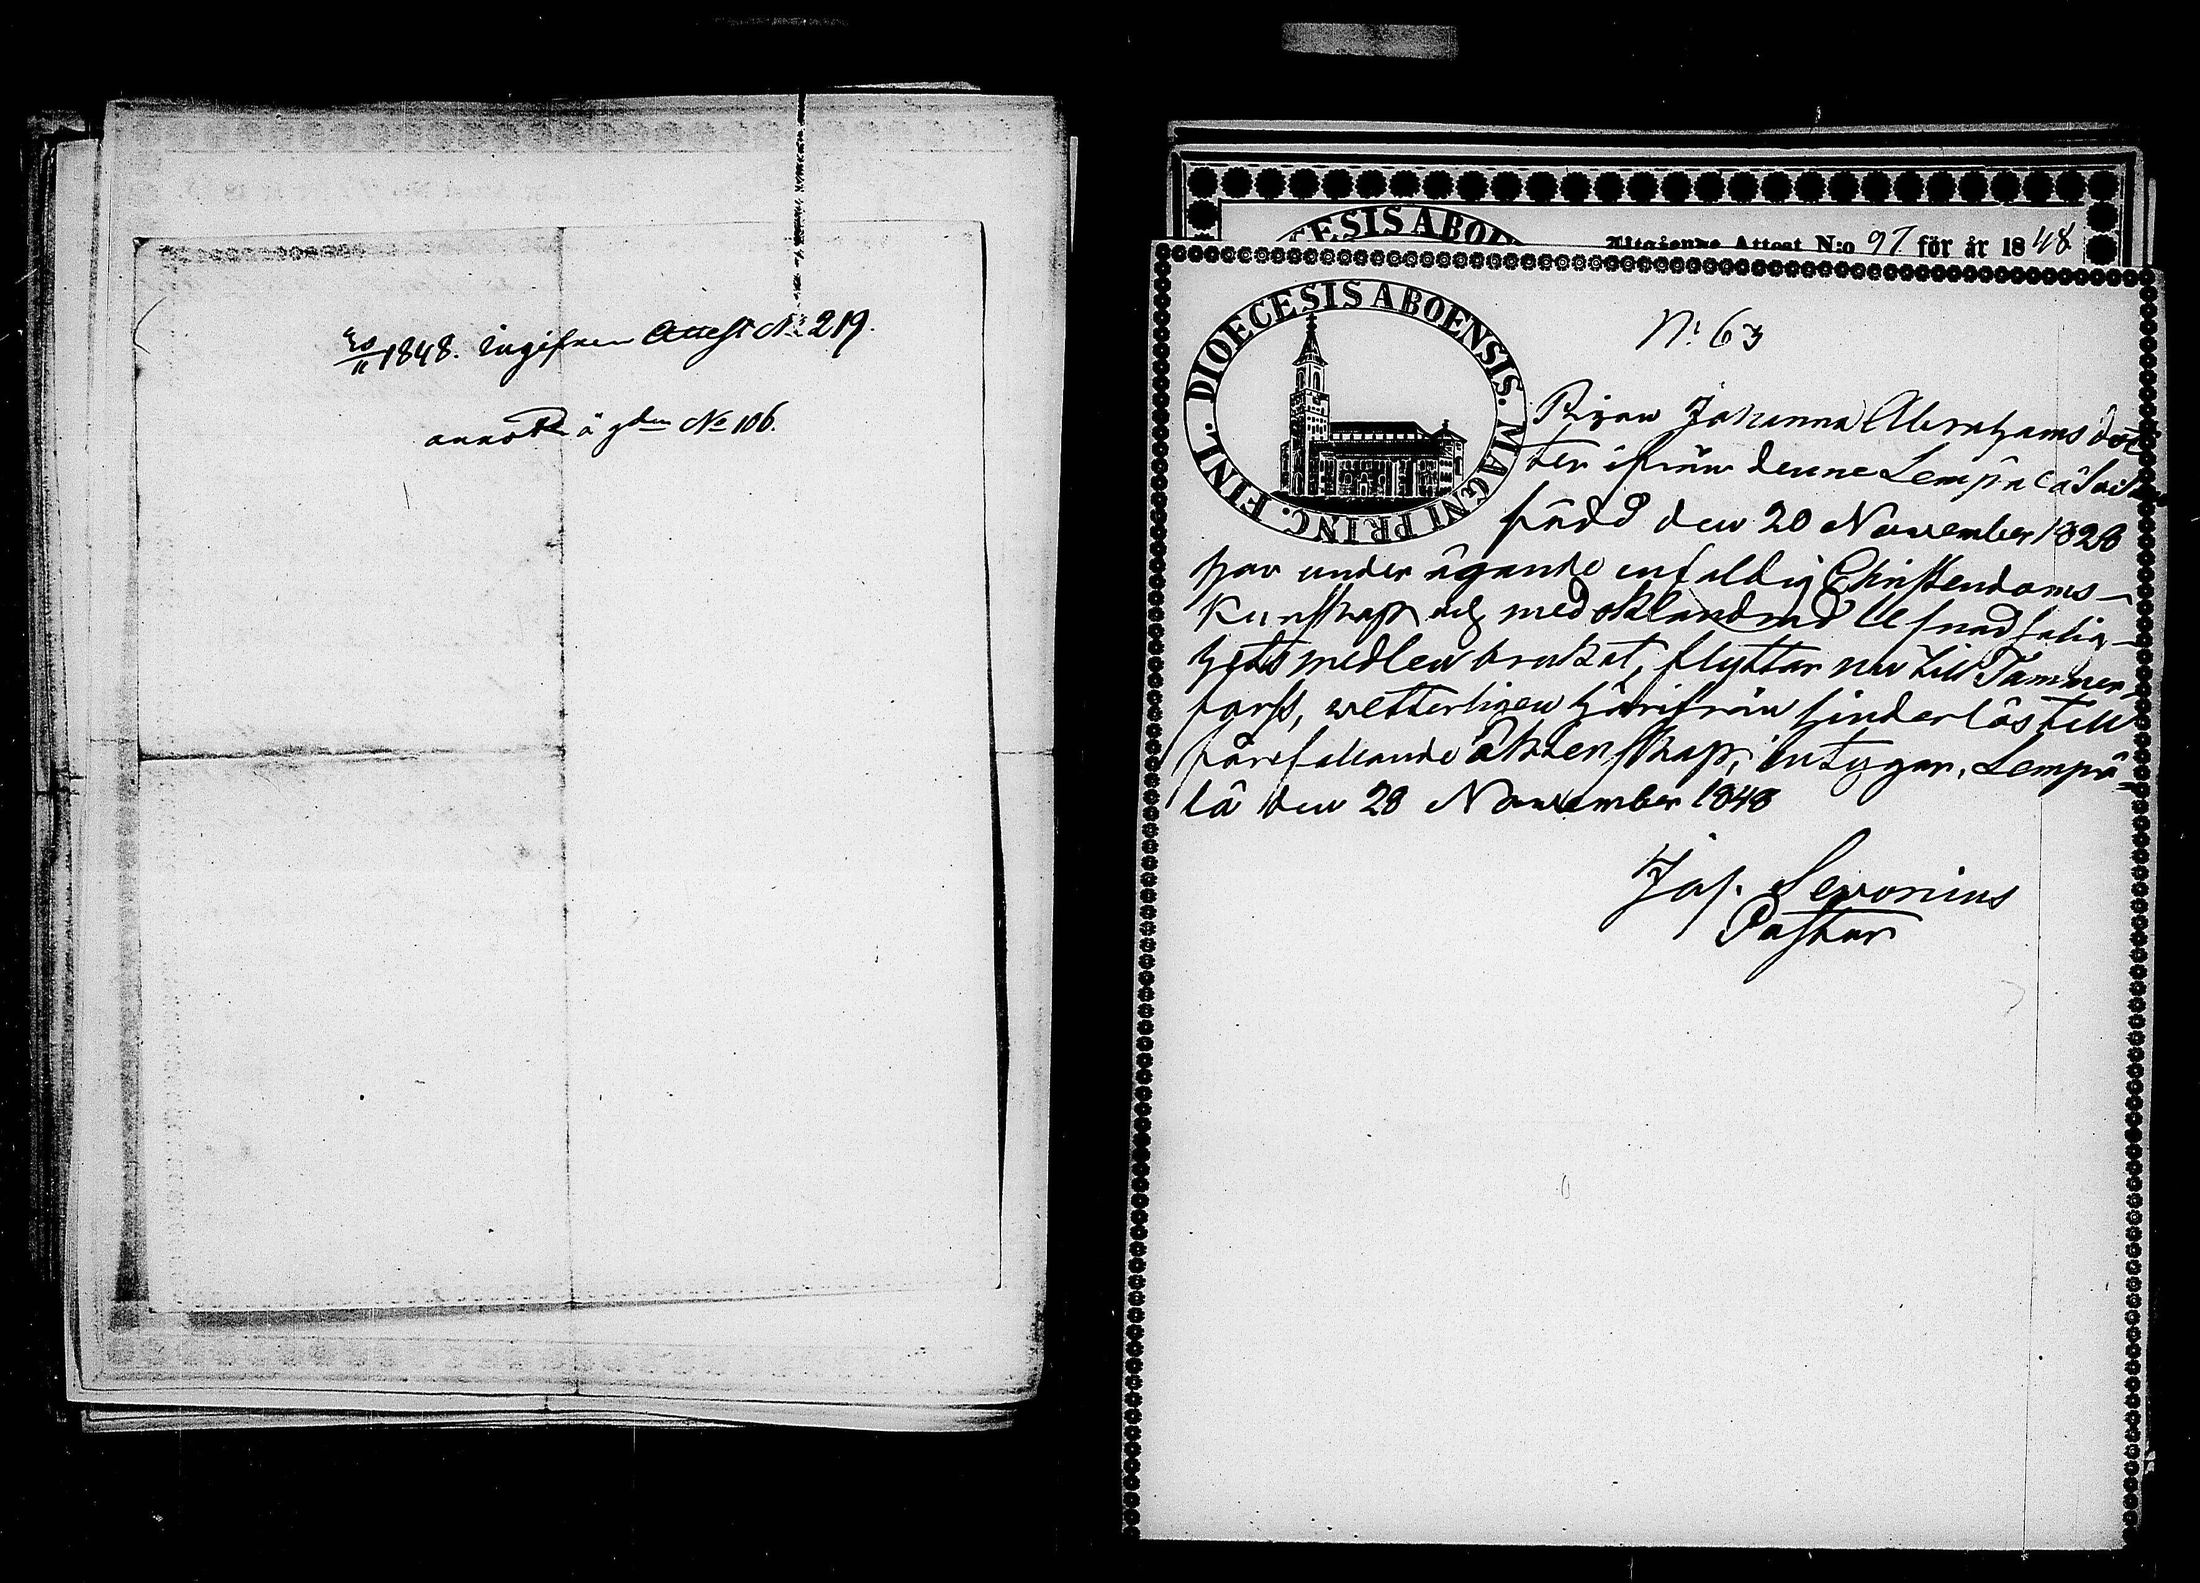 30/11 1848. ingifven Attest No 219.
annot. å gden No 106.
ESIS ABOE
Utgående Attest N:o 97 för år 1848
DIOECESIS ABOENSIS. MAGNI PRINC. FINL.
N: 63
Pigan Johanna Abrahamsdot
ter ifrån denne Lempälä
född den 20 November 1828
har under ägande enfaldig Christendoms-
kunskap och med oklandrad lefnad salig-
hets medlen brukat, flyttar nu till Tammer-
forss, wetterligen härifrån hinderlös till
förefallande äktenskap, intygar. Lempä-
lä den 28 November 1848
Jos. Sevonius
Pastor